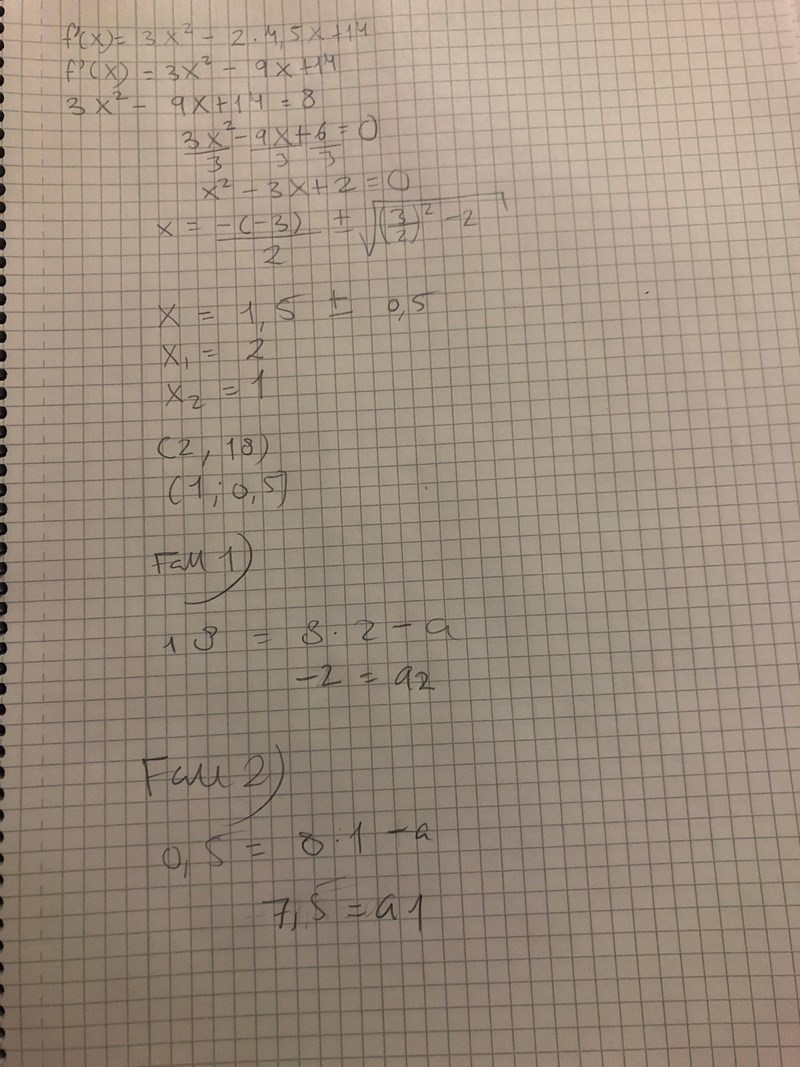 f'(x) = 3x² - 2·4,5x+14
f'(x) = 3x² - 9x+14
3x² - 9x+14 = 8
3x²/3 - 9x/3 + 6/3 = 0
x² - 3x+2 = 0
x = -(-3)/2 ± √((3/2)² - 2)
x = 1,5 ± 0,5
x₁ = 2
x₂ = 1
(2, 18)
(1; 0,5)
Fall 1)
18 = 8·2 - a
-2 = a2
Fall 2)
0,5 = 8·1 - a
7,5 = a1